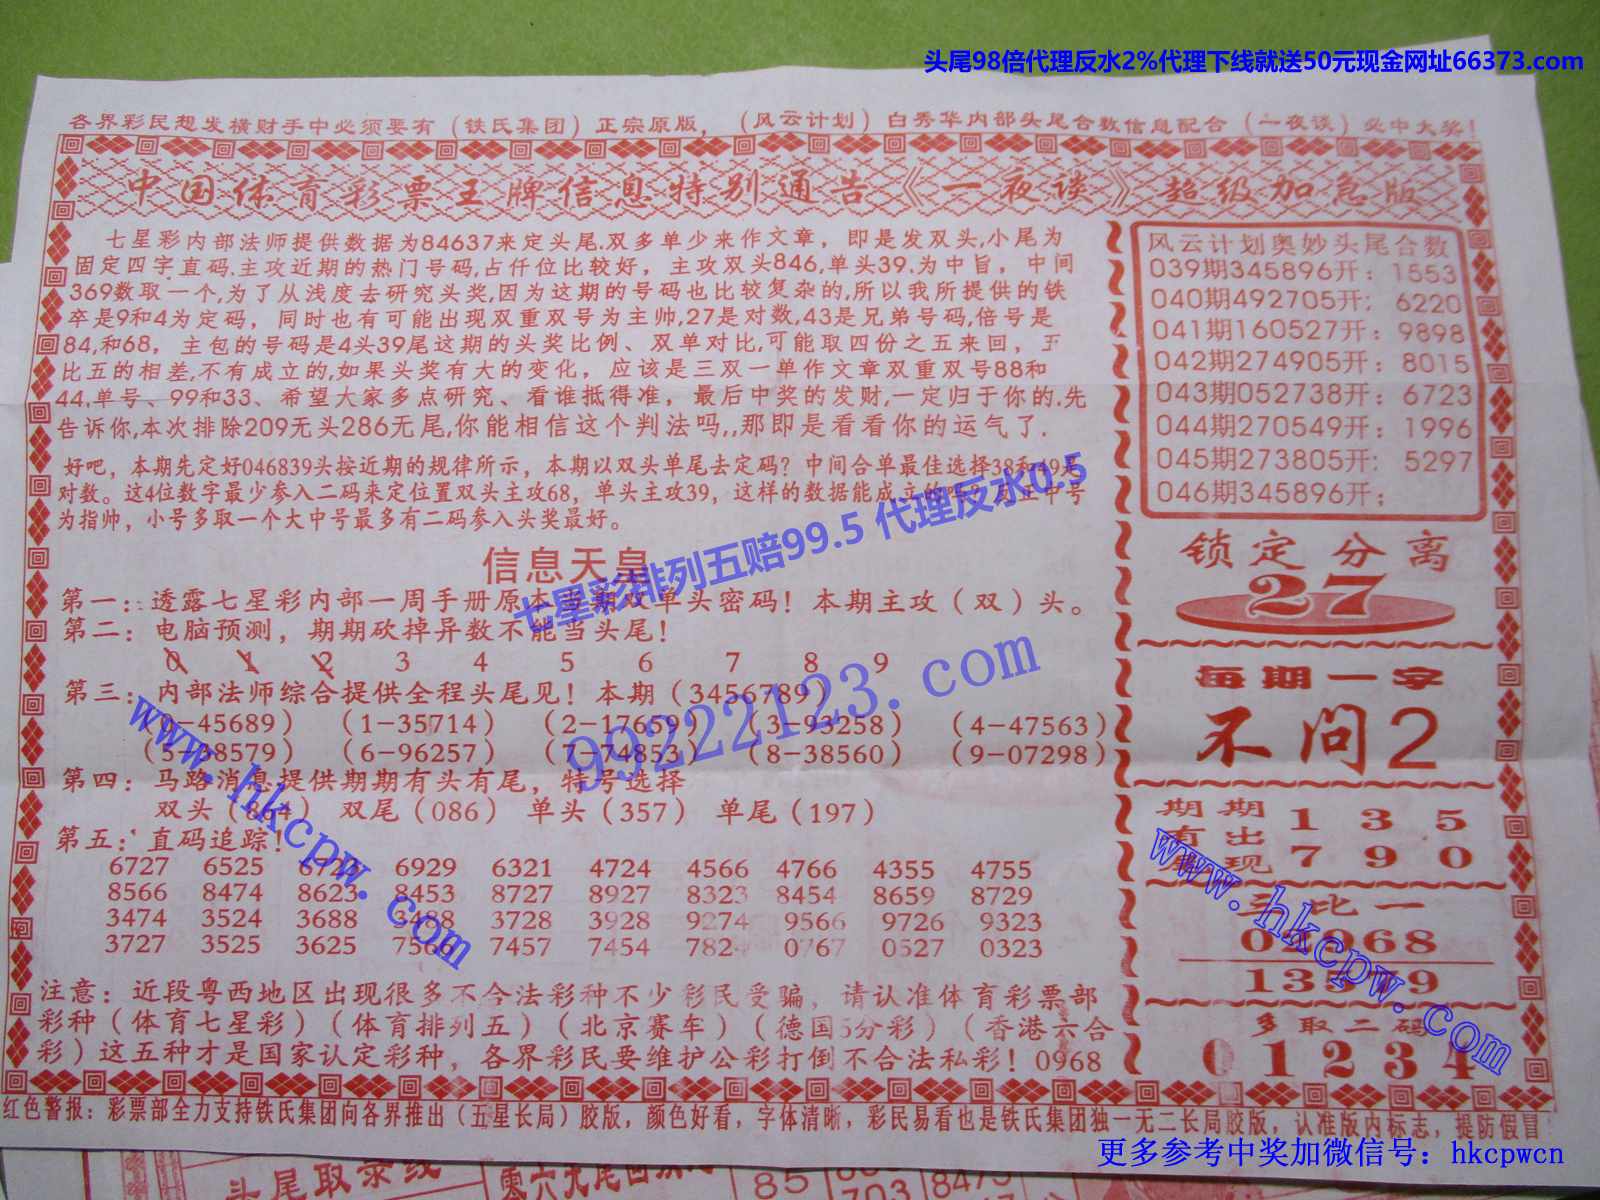 头尾98倍代理反水2%代理下线就送50元现金网址66373.com
各界彩民想发横财手中必须要有（铁氏集团）正宗原版，（风云计划）白秀华内部头尾合数信息配合（一夜谈）必中大奖！
中国体育彩票王牌信息特别通告《一夜谈》超级加急版
七星彩内部法师提供数据为84637来定头尾.双多单少来作文章，即是发双头,小尾为
固定四字直码.主攻近期的热门号码,占仟位比较好，主攻双头846,单头39.为中旨，中间
369数取一个,为了从浅度去研究头奖,因为这期的号码也比较复杂的,所以我所提供的铁
卒是9和4为定码，同时也有可能出现双重双号为主帅,27是对数,43是兄弟号码,倍号是
84,和68，主包的号码是4头39尾这期的头奖比例、双单对比,可能取四份之五来回，五
比五的相差,不有成立的,如果头奖有大的变化，应该是三双一单作文章双重双号88和
44,单号、99和33、希望大家多点研究、看谁抵得准，最后中奖的发财,一定归于你的.先
告诉你,本次排除209无头286无尾,你能相信这个判法吗,,那即是看看你的运气了.
好吧，本期先定好046839头接近期的规律所示，本期以双头单尾去定码？中间合单最佳选择38和49是
对数。这4位数字最少参入二码来定位置双头主攻68，单头主攻39，这样的数据能成立的吗？反正中号
为指帅，小号多取一个大中号最多有二码参入头奖最好。
信息天皇
第一：透露七星彩内部一周手册原本当期双单头密码！本期主攻（双）头。
第二：电脑预测，期期砍掉异数不能当头尾！
0 1 2 3 4 5 6 7 8 9
第三：内部法师综合提供全程头尾见！本期（3456789）
（0-45689）（1-35714）（2-17659）（3-93258）（4-47563）
（5-38579）（6-96257）（7-74853）（8-38560）（9-07298）
第四：马路消息提供期期有头有尾，特号选择
双头（864）双尾（086）单头（357）单尾（197）
第五：直码追踪！
6727 6525 6929 6321 4724 4566 4766 4355 4755
8566 8474 8623 8453 8727 8927 8323 8454 8659 8729
3474 3524 3688 3488 3728 3928 9274 9566 9726 9323
3727 3525 3625 7566 7457 7454 7824 0767 0527 0323
注意：近段粤西地区出现很多不合法彩种不少彩民受骗，请认准体育彩票部
彩种（体育七星彩）（体育排列五）（北京赛车）（德国5分彩）（香港六合
彩）这五种才是国家认定彩种，各界彩民要维护公彩打倒不合法私彩！0968
风云计划奥妙头尾合数
039期345896开：1553
040期492705开；6220
041期160527开：9898
042期274905开：8015
043期052738开：6723
044期270549开：1996
045期273805开；5297
046期345896开；
锁定分离
27
每期一字
不问2
期期 1 3 5
有出
现 7 9 0
三比一
02968
13579
多取二码
0 1 2 3 4
红色警报：彩票部全力支持铁氏集团向各界推出（五星长局）胶版，颜色好看，字体清晰，彩民易看也是铁氏集团独一无二长局胶版，认准版内标志，提防假冒
七星彩排列五赔99.5 代理反水0.5
99222123.com
www.hkcpw.com
www.hkcpw.com
更多参考中奖加微信号：hkcpwcn
头尾取录线
85
703 8473